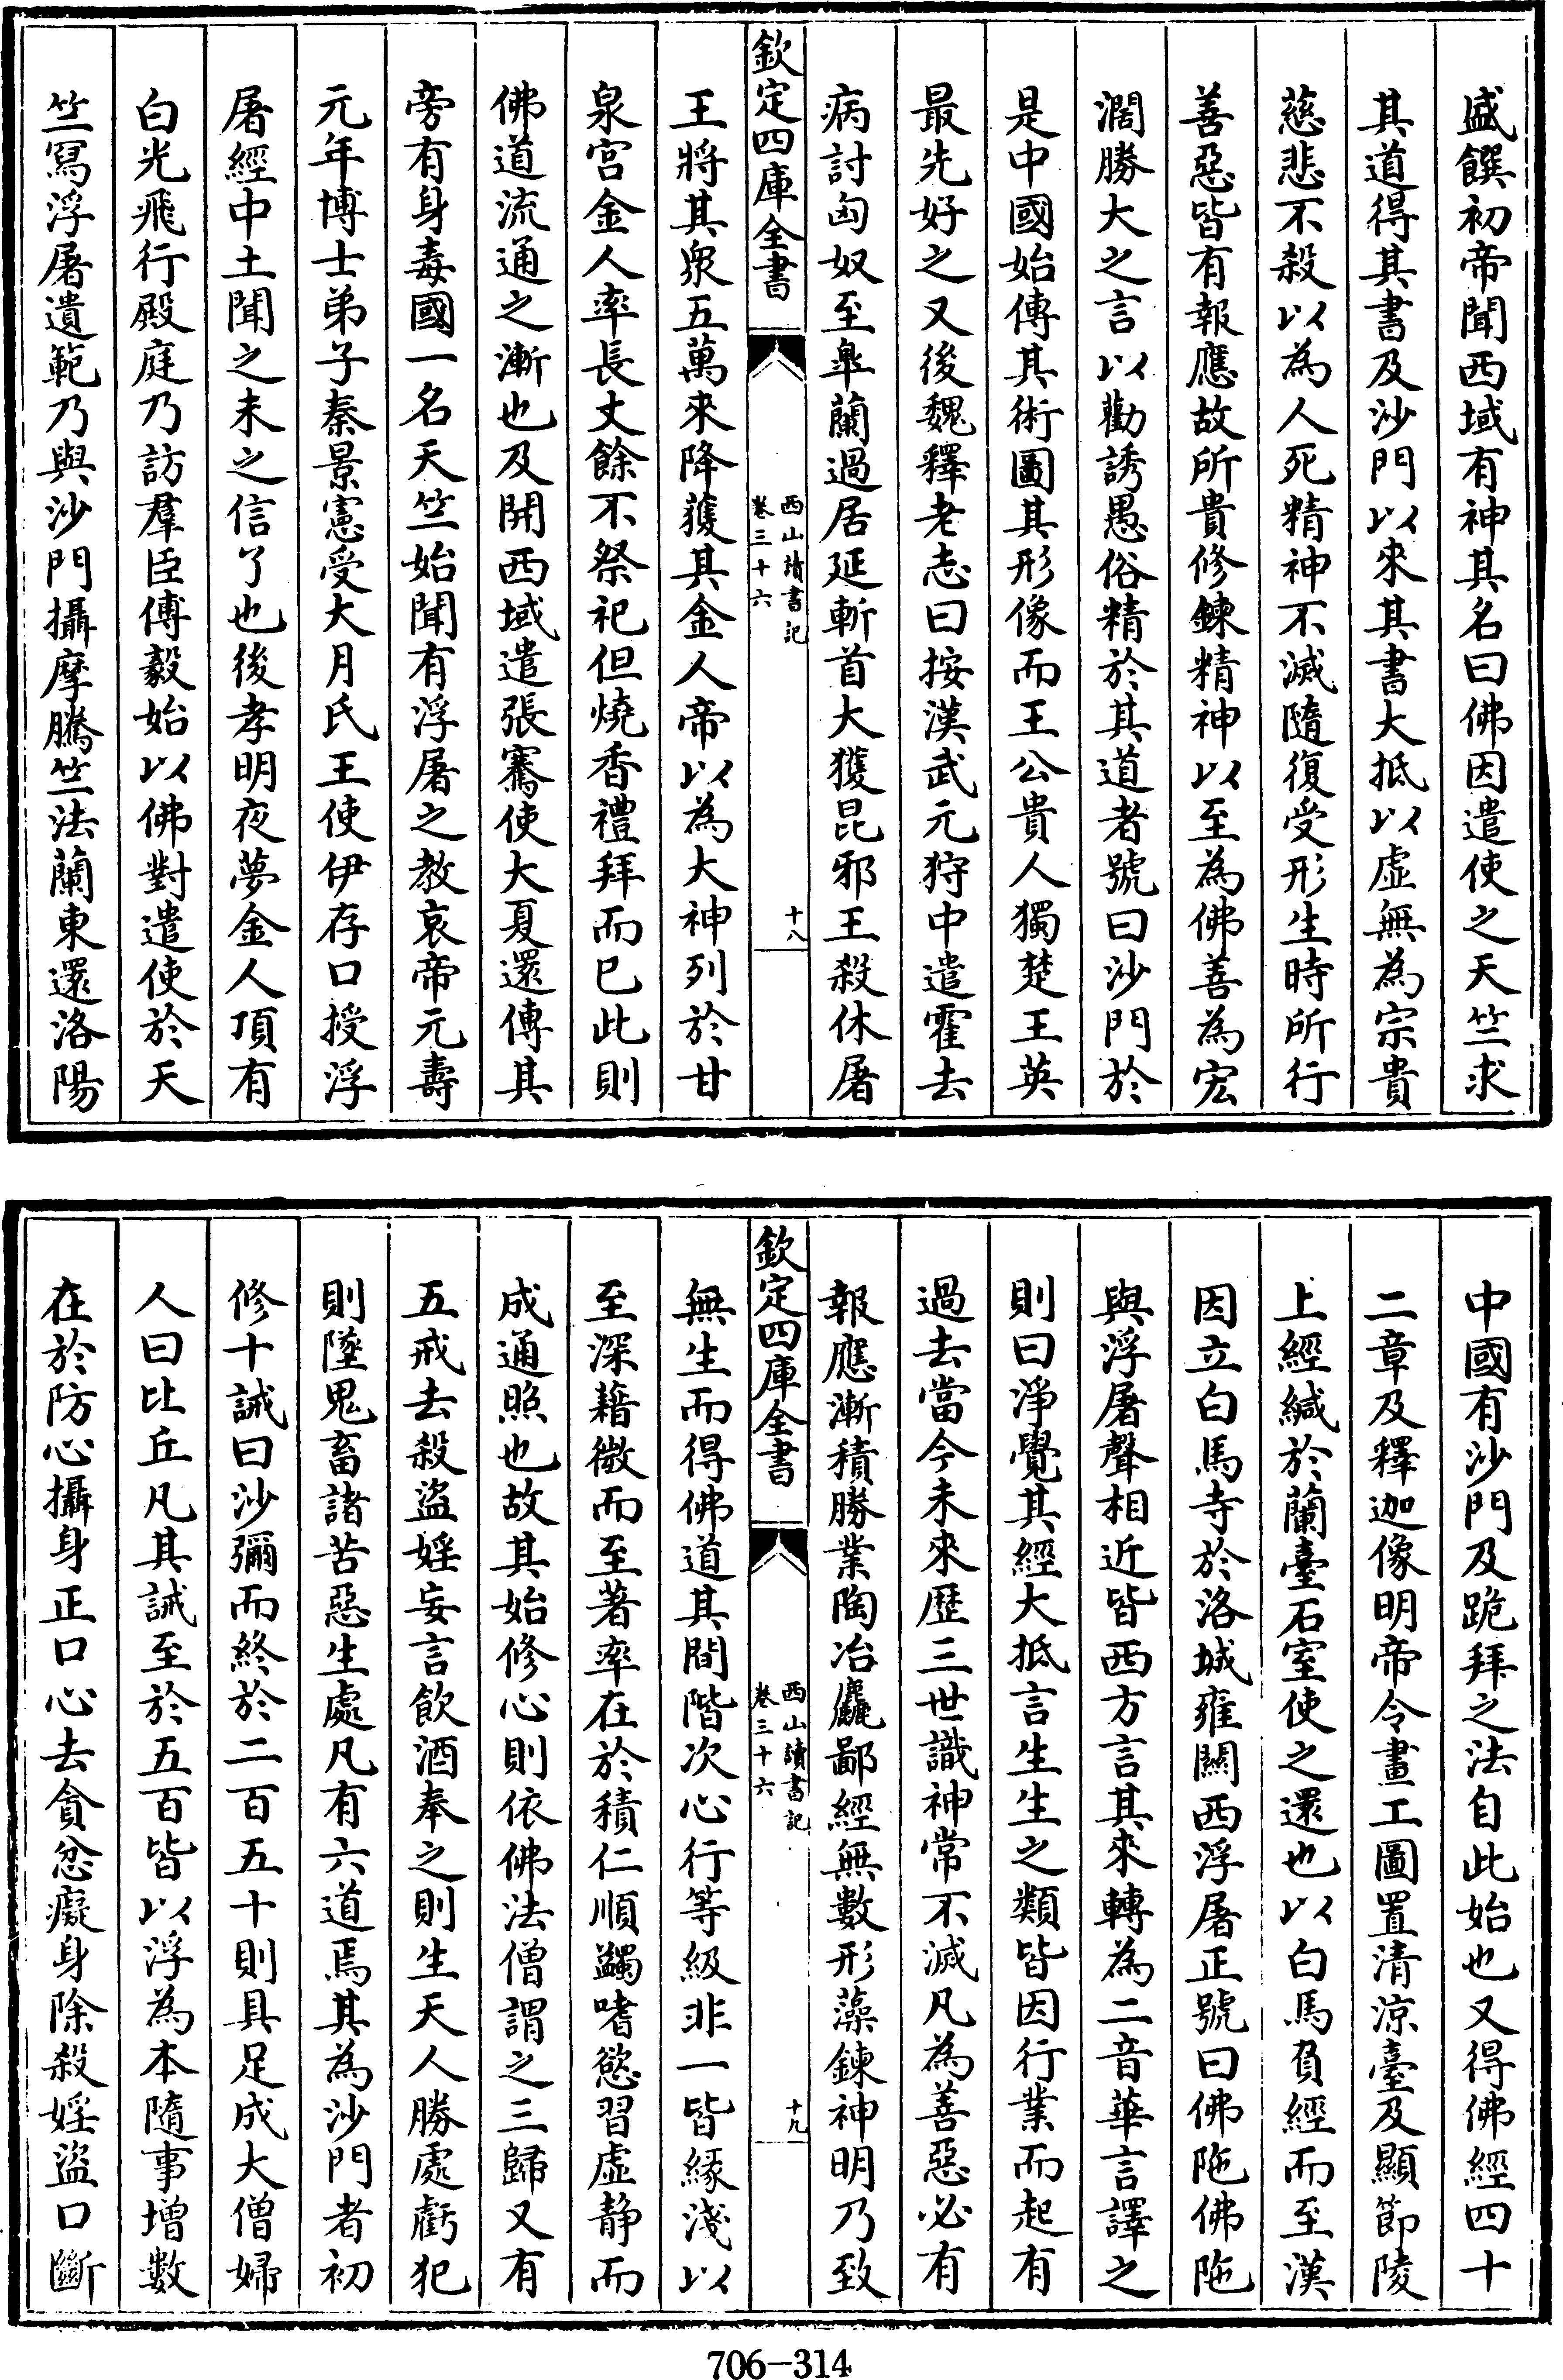 盛饌初帝聞西域有神其名曰佛因遣使之天竺求
其道得其書及沙門以來其書大抵以虛無為宗貴
慈悲不殺以為人死精神不滅隨復受形生時所行
善惡皆有報應故所貴修鍊精神以至為佛善為宏
濶勝大之言以勸誘愚俗精於其道者號曰沙門於
是中國始傳其術圖其形像而王公貴人獨楚王英
最先好之又後魏釋老志曰按漢武元狩中遣霍去
病討匈奴至臯蘭過居延斬首大獲昆邪王殺休屠
欽定四庫全書
西山讀書記
卷三十六
十八
王將其衆五萬來降獲其金人帝以為大神列於甘
泉宮金人率長丈餘不祭祀但燒香禮拜而已此則
佛道流通之漸也及開西域遣張騫使大夏還傳其
旁有身毒國一名天竺始聞有浮屠之教哀帝元壽
元年博士弟子秦景憲受大月氏王使伊存口授浮
屠經中土聞之未之信了也後孝明夜夢金人頂有
白光飛行殿庭乃訪羣臣傅毅始以佛對遣使於天
竺冩浮屠遺範乃與沙門攝摩騰竺法蘭東還洛陽
中國有沙門及跪拜之法自此始也又得佛經四十
二章及釋迦像明帝令畫工圖置清涼臺及顯節陵
上經緘於蘭臺石室使之還也以白馬負經而至漢
因立白馬寺於洛城雍闗西浮屠正號曰佛陁佛陁
與浮屠聲相近皆西方言其來轉為二音華言譯之
則曰淨覺其經大抵言生生之類皆因行業而起有
過去當今未來歷三世識神常不滅凡為善惡必有
報應漸積勝業陶冶麤鄙經無數形藻鍊神明乃致
欽定四庫全書
西山讀書記
卷三十六
十九
無生而得佛道其間階次心行等級非一皆緣淺以
至深藉微而至著率在於積仁順蠲嗜慾習虛静而
成通照也故其始修心則依佛法僧謂之三歸又有
五戒去殺盜婬妄言飲酒奉之則生天人勝處虧犯
則墜鬼畜諸苦惡生處凡有六道焉其為沙門者初
修十誡曰沙彌而終於二百五十則具足成大僧婦
人曰比丘凡其誡至於五百皆以浮為本隨事增數
在於防心攝身正口心去貪忿癡身除殺婬盜口斷
706-314